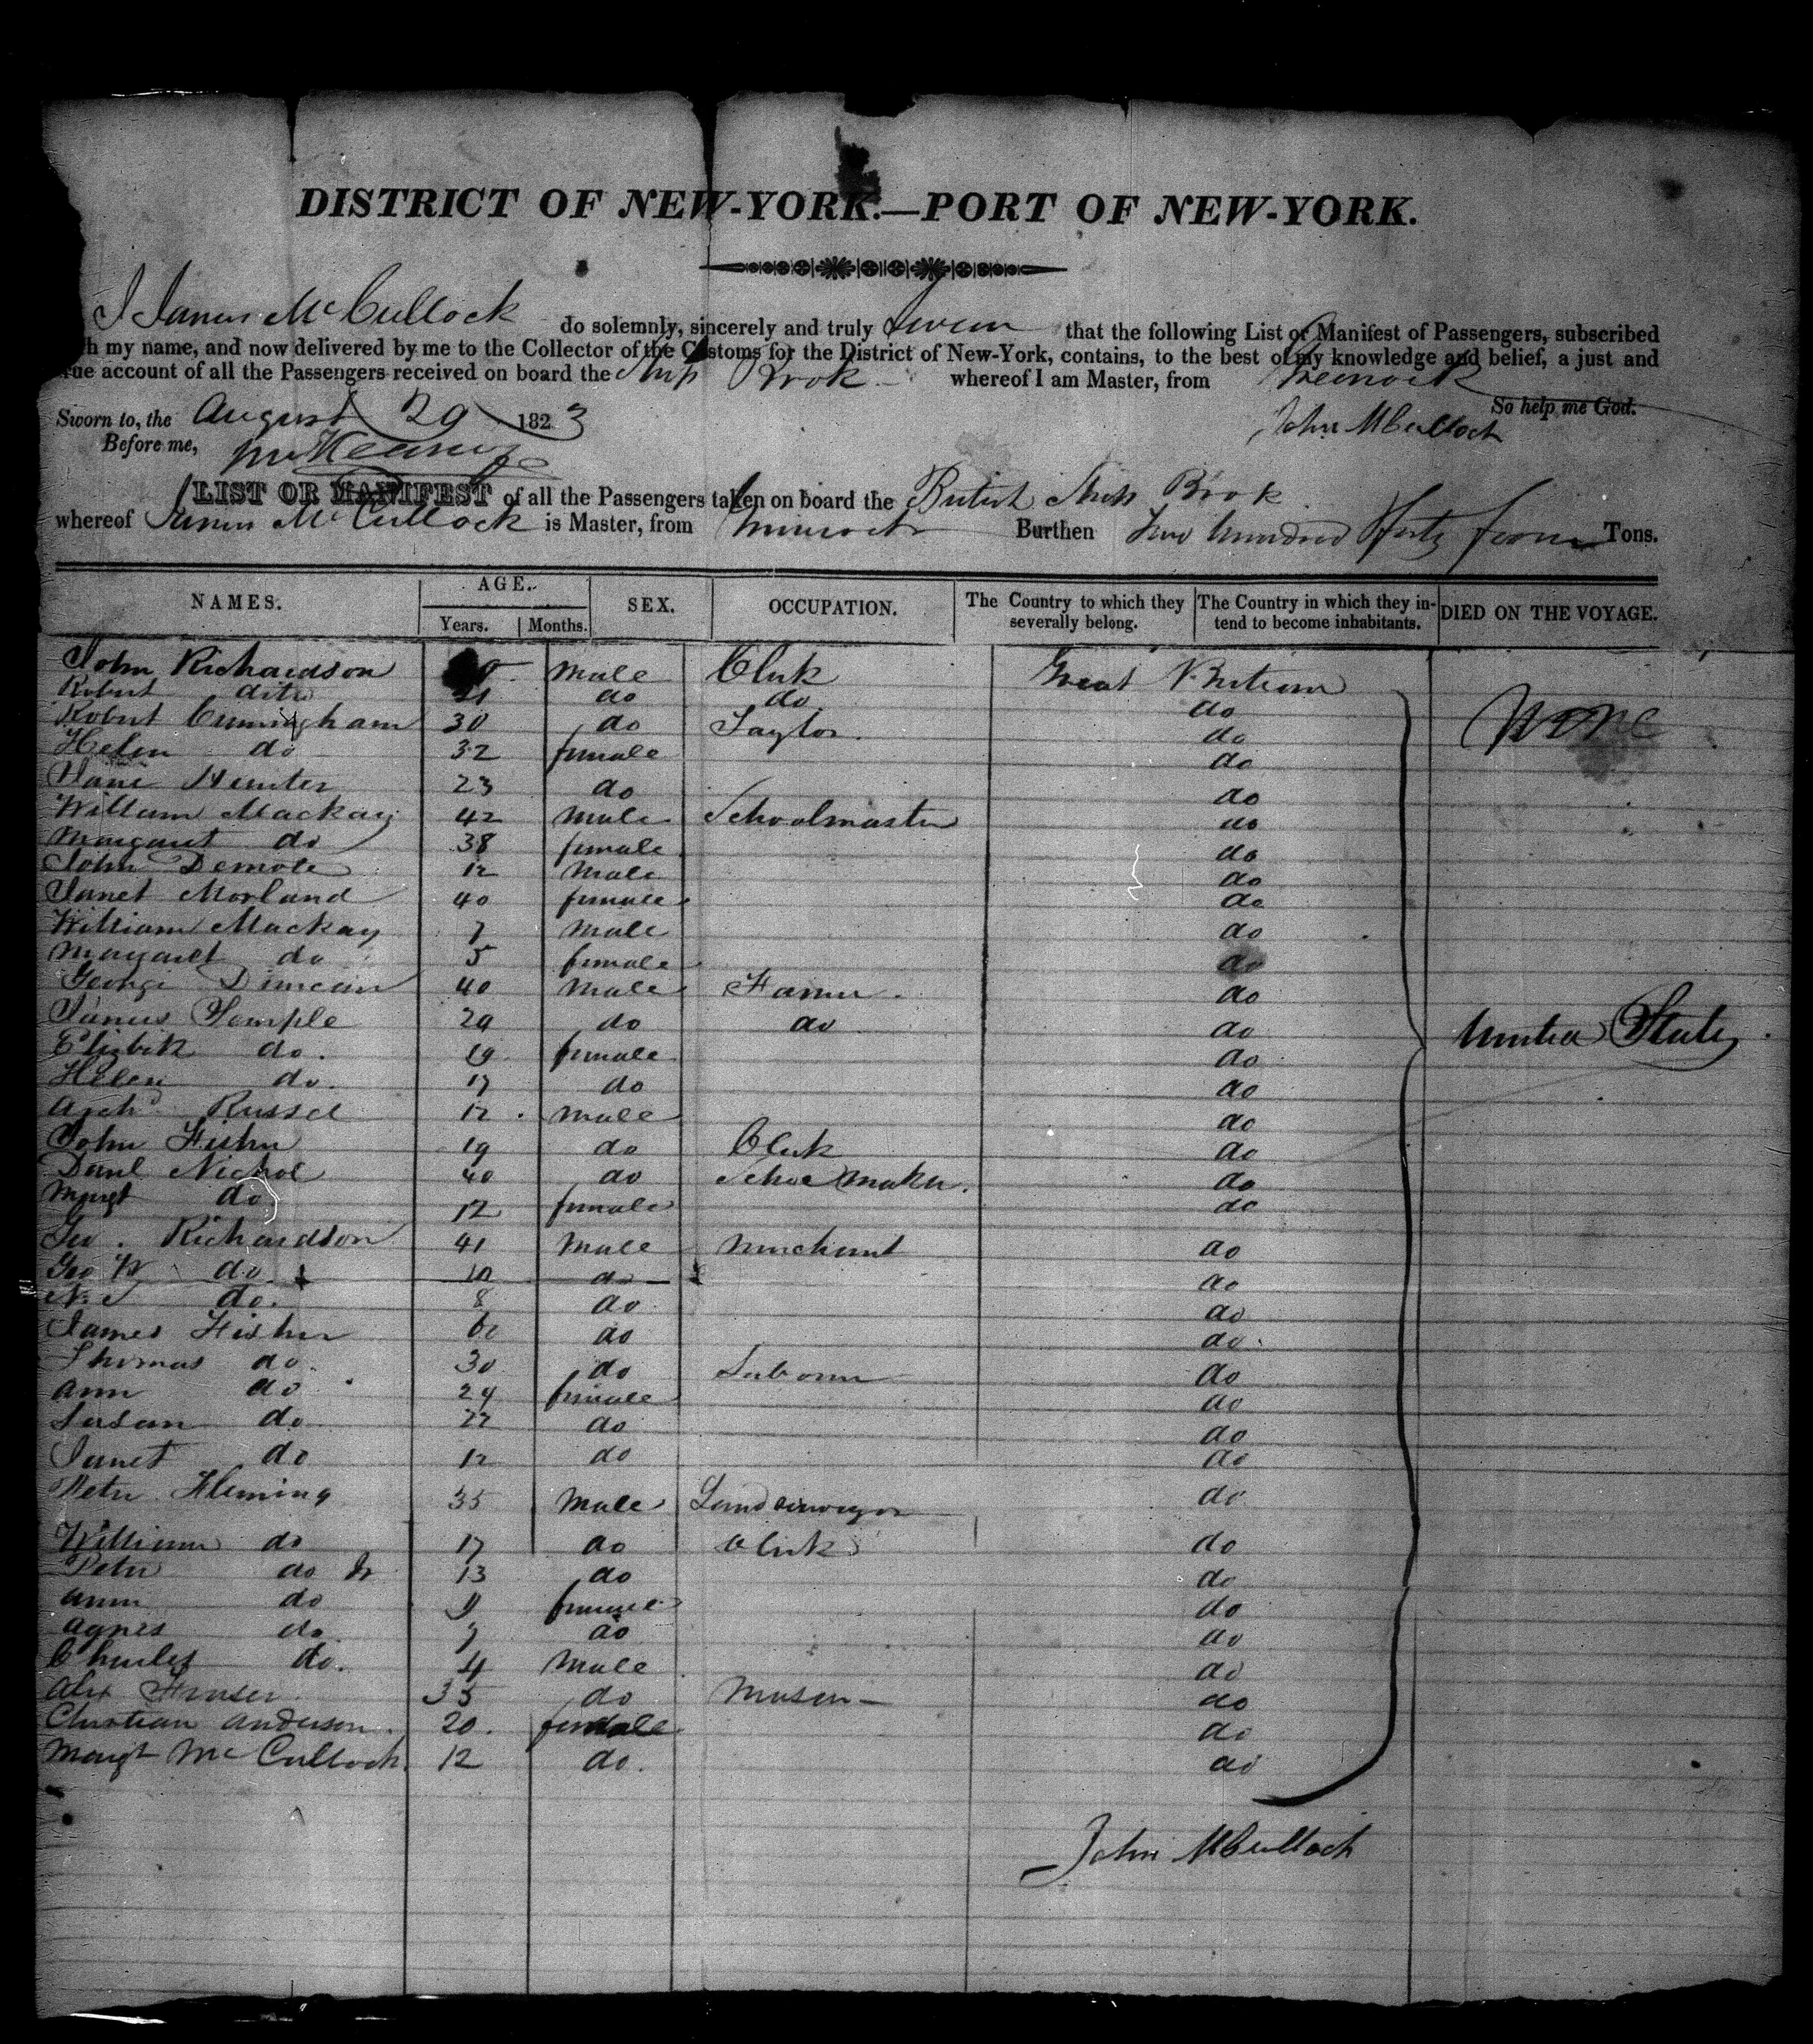 DISTRICT OF NEW-YORK.—PORT OF NEW-YORK.
I James McCullock do solemnly, sincerely and truly Swear that the following List or Manifest of Passengers, subscribed
h my name, and now delivered by me to the Collector of the Customs for the District of New-York, contains, to the best of my knowledge and belief, a just and
true account of all the Passengers received on board the Ship Brok whereof I am Master, from Greenock
So help me God.
Sworn to, the August 29 1823 John McCulloch
Before me,
LIST OR MANIFEST of all the Passengers taken on board the British Ship Brok
whereof James McCullock is Master, from Greenock Burthen Two hundred forty four Tons.
NAMES. AGE. Years. Months. SEX. OCCUPATION. The Country to which they severally belong. The Country in which they intend to become inhabitants. DIED ON THE VOYAGE.
John Richardson male Clerk Great Britain
Robert ditto 21 do do do
Robert Cunningham 30 do Taylor do None
Helen do 32 female do
Jane Hunter 23 do do
William Mackay 42 male Schoolmaster do
Margaret do 38 female do
John Demole 12 male do
Janet Morland 40 female do
William Mackay 7 male do
Margaret do 5 female do
George Duncan 40 male Farmer do
James Temple 29 do do do United States
Elizbth do. 19 female do
Helen do. 17 do do
Archd Russel 12 male do
John Fisher 19 do Clerk do
Danl Nichol 40 do Shoe maker. do
Margt do 12 female do
Geo. Richardson 41 male merchant do
Geo W do. 10 do do
do. 8 do do
James Fisher 60 do do
Thomas do. 30 do Laborer do
Ann do 24 female do
Susan do 22 do do
Janet do 12 do do
Peter Fleming 35 male Landsurveyor do
William do 17 do Clerk do
Peter do Jr 13 do do
Ann do 9 female do
Agnes do 7 do do
Charles do. 4 male do
Alex Fraser 35 do Mason do
Christian Anderson. 20. female do
Margt McCulloch. 12 do. do
John McCulloch